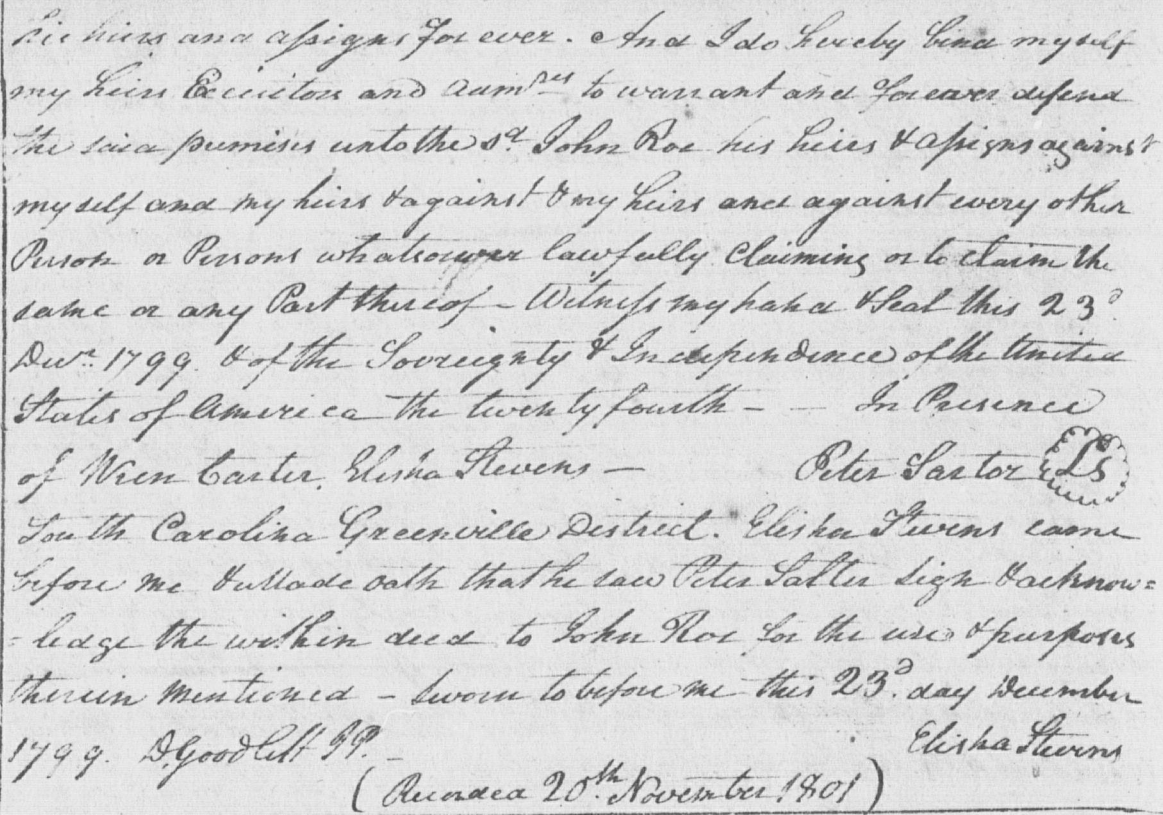 his heirs and assigns for ever. And I do hereby bind myself
my heirs Executors and Adm.rs to warrant and forever defend
the said premises unto the sd. John Roe his heirs & assigns against
myself and my heirs & against & my heirs and against every other
Person or Persons whatsoever lawfully Claiming or to Claim the
same or any Part thereof - Witness my hand & Seal this 23d.
Decr. 1799. & of the Sovreignty & Independence of the United
States of America the twenty fourth - - In Presence
of Wren Carter, Elisha Stevens - Peter Sartor LS
South Carolina Greenville District. Elisha Stevens came
before me & Made oath that he saw Peter Salter sign & acknow=
=ledge the within deed to John Roe for the use & purposes
therein Mentioned - Sworn to before me this 23d. day December
1799. D. Goodlett JP Elisha Stevens
(Recorded 20th. November 1801)